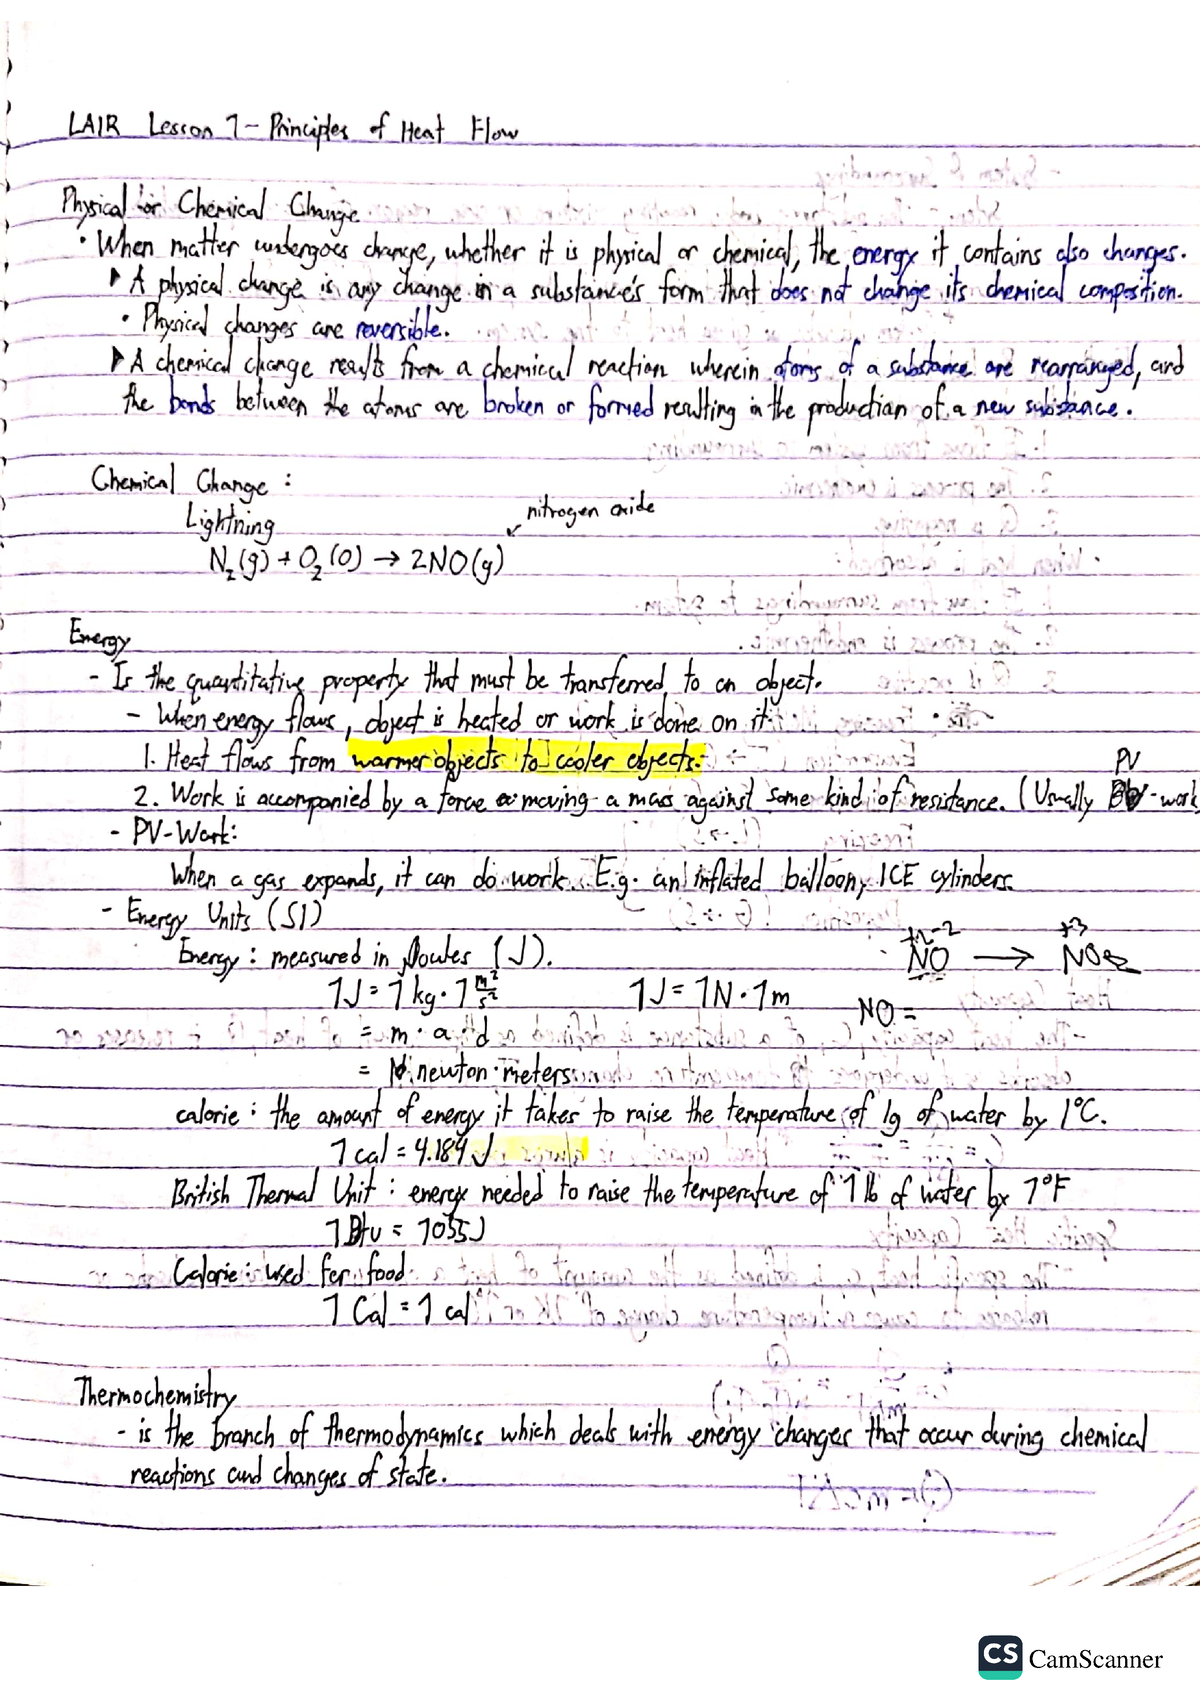 LAIR Lesson 1 - Principles of Heat Flow
Physical or Chemical Change
• When matter undergoes change, whether it is physical or chemical, the energy it contains also changes.
▶ A physical change is any change in a substance's form that does not change its chemical composition.
• Physical changes are reversible.
▶ A chemical change results from a chemical reaction wherein atoms of a substance are rearranged, and
the bonds between the atoms are broken or formed resulting in the production of a new substance.
Chemical Change :
Lightning
nitrogen oxide
N₂(g) + O₂(0) → 2NO(g)
Energy
- Is the quantitative property that must be transferred to an object.
- When energy flows, object is heated or work is done on it:
1. Heat flows from warmer objects to cooler objects.
PV
2. Work is accompanied by a force moving a mass against some kind of resistance. (Usually -work
- PV-Work:
When a gas expands, it can do work. E.g. an inflated balloon, ICE cylinders.
- Energy Units (SI)
+2 -2 +3
Energy : measured in Joules (J). NO → NO₂
1J = 1 kg · 1 m²/s² 1J = 1N · 1m NO =
= m · a · d
= newton · meters
calorie : the amount of energy it takes to raise the temperature of 1g of water by 1°C.
1 cal = 4.184 J
British Thermal Unit : energy needed to raise the temperature of 1 lb of water by 1°F
1 Btu = 1055J
Calorie : used for food
1 Cal = 1 cal
Thermochemistry
- is the branch of thermodynamics which deals with energy changes that occur during chemical
reactions and changes of state.
CS CamScanner